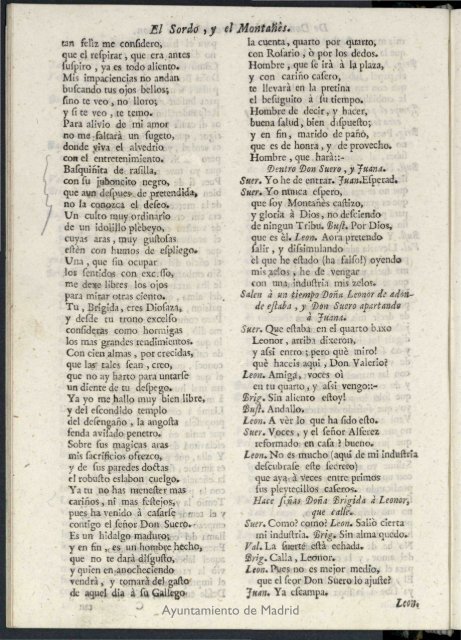 El Sordo, y el Montañès.
tan feliz me considero,
que el respirar, que era antes
suspiro, ya es todo aliento.
Mis impaciencias no andan
buscando tus ojos bellos;
sino te veo, no lloro;
y si te veo, te temo.
Para alivio de mi amor
no me faltarà un sugeto,
donde viva el alvedrio
con el entretenimiento.
Basquiñita de rasilla,
con su juboncito negro,
que aun despues de pretendida,
no la conozca el deseo.
Un culto muy ordinario
de un idolillo plebeyo,
cuyas aras, muy gustosas
estèn con humos de espliego.
Una, que sin ocupar
los sentidos con excesso,
me dexe libres los ojos
para mirar otras ciento.
Tu, Brigida, eres Diosaza,
y desde tu trono excelso
consideras como hormigas
los mas grandes rendimientos.
Con cien almas, por crecidas,
que las tales sean, creo,
que no ay harto para untarse
un diente de tu despego.
Ya yo me hallo muy bien libre,
y del escondido templo
del desengaño, la angosta
senda avisado penetro.
Sobre sus magicas aras
mis sacrificios ofrezco,
y de sus paredes doctas
el robusto eslabon cuelgo.
Ya tu no has menester mas
cariños, ni mas festejos,
pues ha venido à casarse
contigo el señor Don Suero.
Es un hidalgo maduro;
y en fin, es un hombre hecho,
que no te darà disgusto,
y quien en anocheciendo
vendrà, y tomarà del gasto
de aquel dia à su Gallego
la cuenta, quarto por quarto,
con Rosario, ò por los dedos.
Hombre, que se irà à la plaza,
y con cariño casero,
te llevarà en la pretina
el besuguito à su tiempo.
Hombre de decir, y hacer,
buena salud, bien dispuesto;
y en fin, marido de paño,
que es de honra, y de provecho.
Hombre, que harà::-
Dentro Don Suero, y Juana.
Suer. Yo he de entrar. Juan. Esperad.
Suer. Yo nunca espero,
que soy Montañès castizo,
y gloria à Dios, no desciendo
de ningun Tribu. Bust. Por Dios,
que es èl. Leon. Aora pretendo
salir, y dissimulando
el que he estado (ha falso!) oyendo
mis zelos, he de vengar
con una industria mis zelos.
Salen à un tiempo Doña Leonor de adon-
de estaba, y Don Suero apartando
à Juana.
Suer. Que estaba en el quarto baxo
Leonor, arriba dixeron,
y assi entro; pero què miro!
què haceis aqui, Don Valerio?
Leon. Amiga, voces oì
en tu quarto, y assi vengo::-
Brig. Sin aliento estoy!
Bust. Andallo.
Leon. A vèr lo que ha sido esto.
Suer. Voces, y el señor Alferez
reformado en casa? bueno.
Leon. No es mucho (aqui de mi industria
descubrase este secreto)
que aya à veces entre primos
sus pleytecillos caseros.
Hace señas Doña Brigida à Leonor,
que calle.
Suer. Como? como? Leon. Saliò cierta
mi industria. Brig. Sin alma quedo.
Val. La suerte està echada.
Brig. Calla, Leonor.
Leon. Pues no es mejor medio,
que el señor Don Suero lo ajuste?
Juan. Ya escampa.
Leon.
Ayuntamiento de Madrid